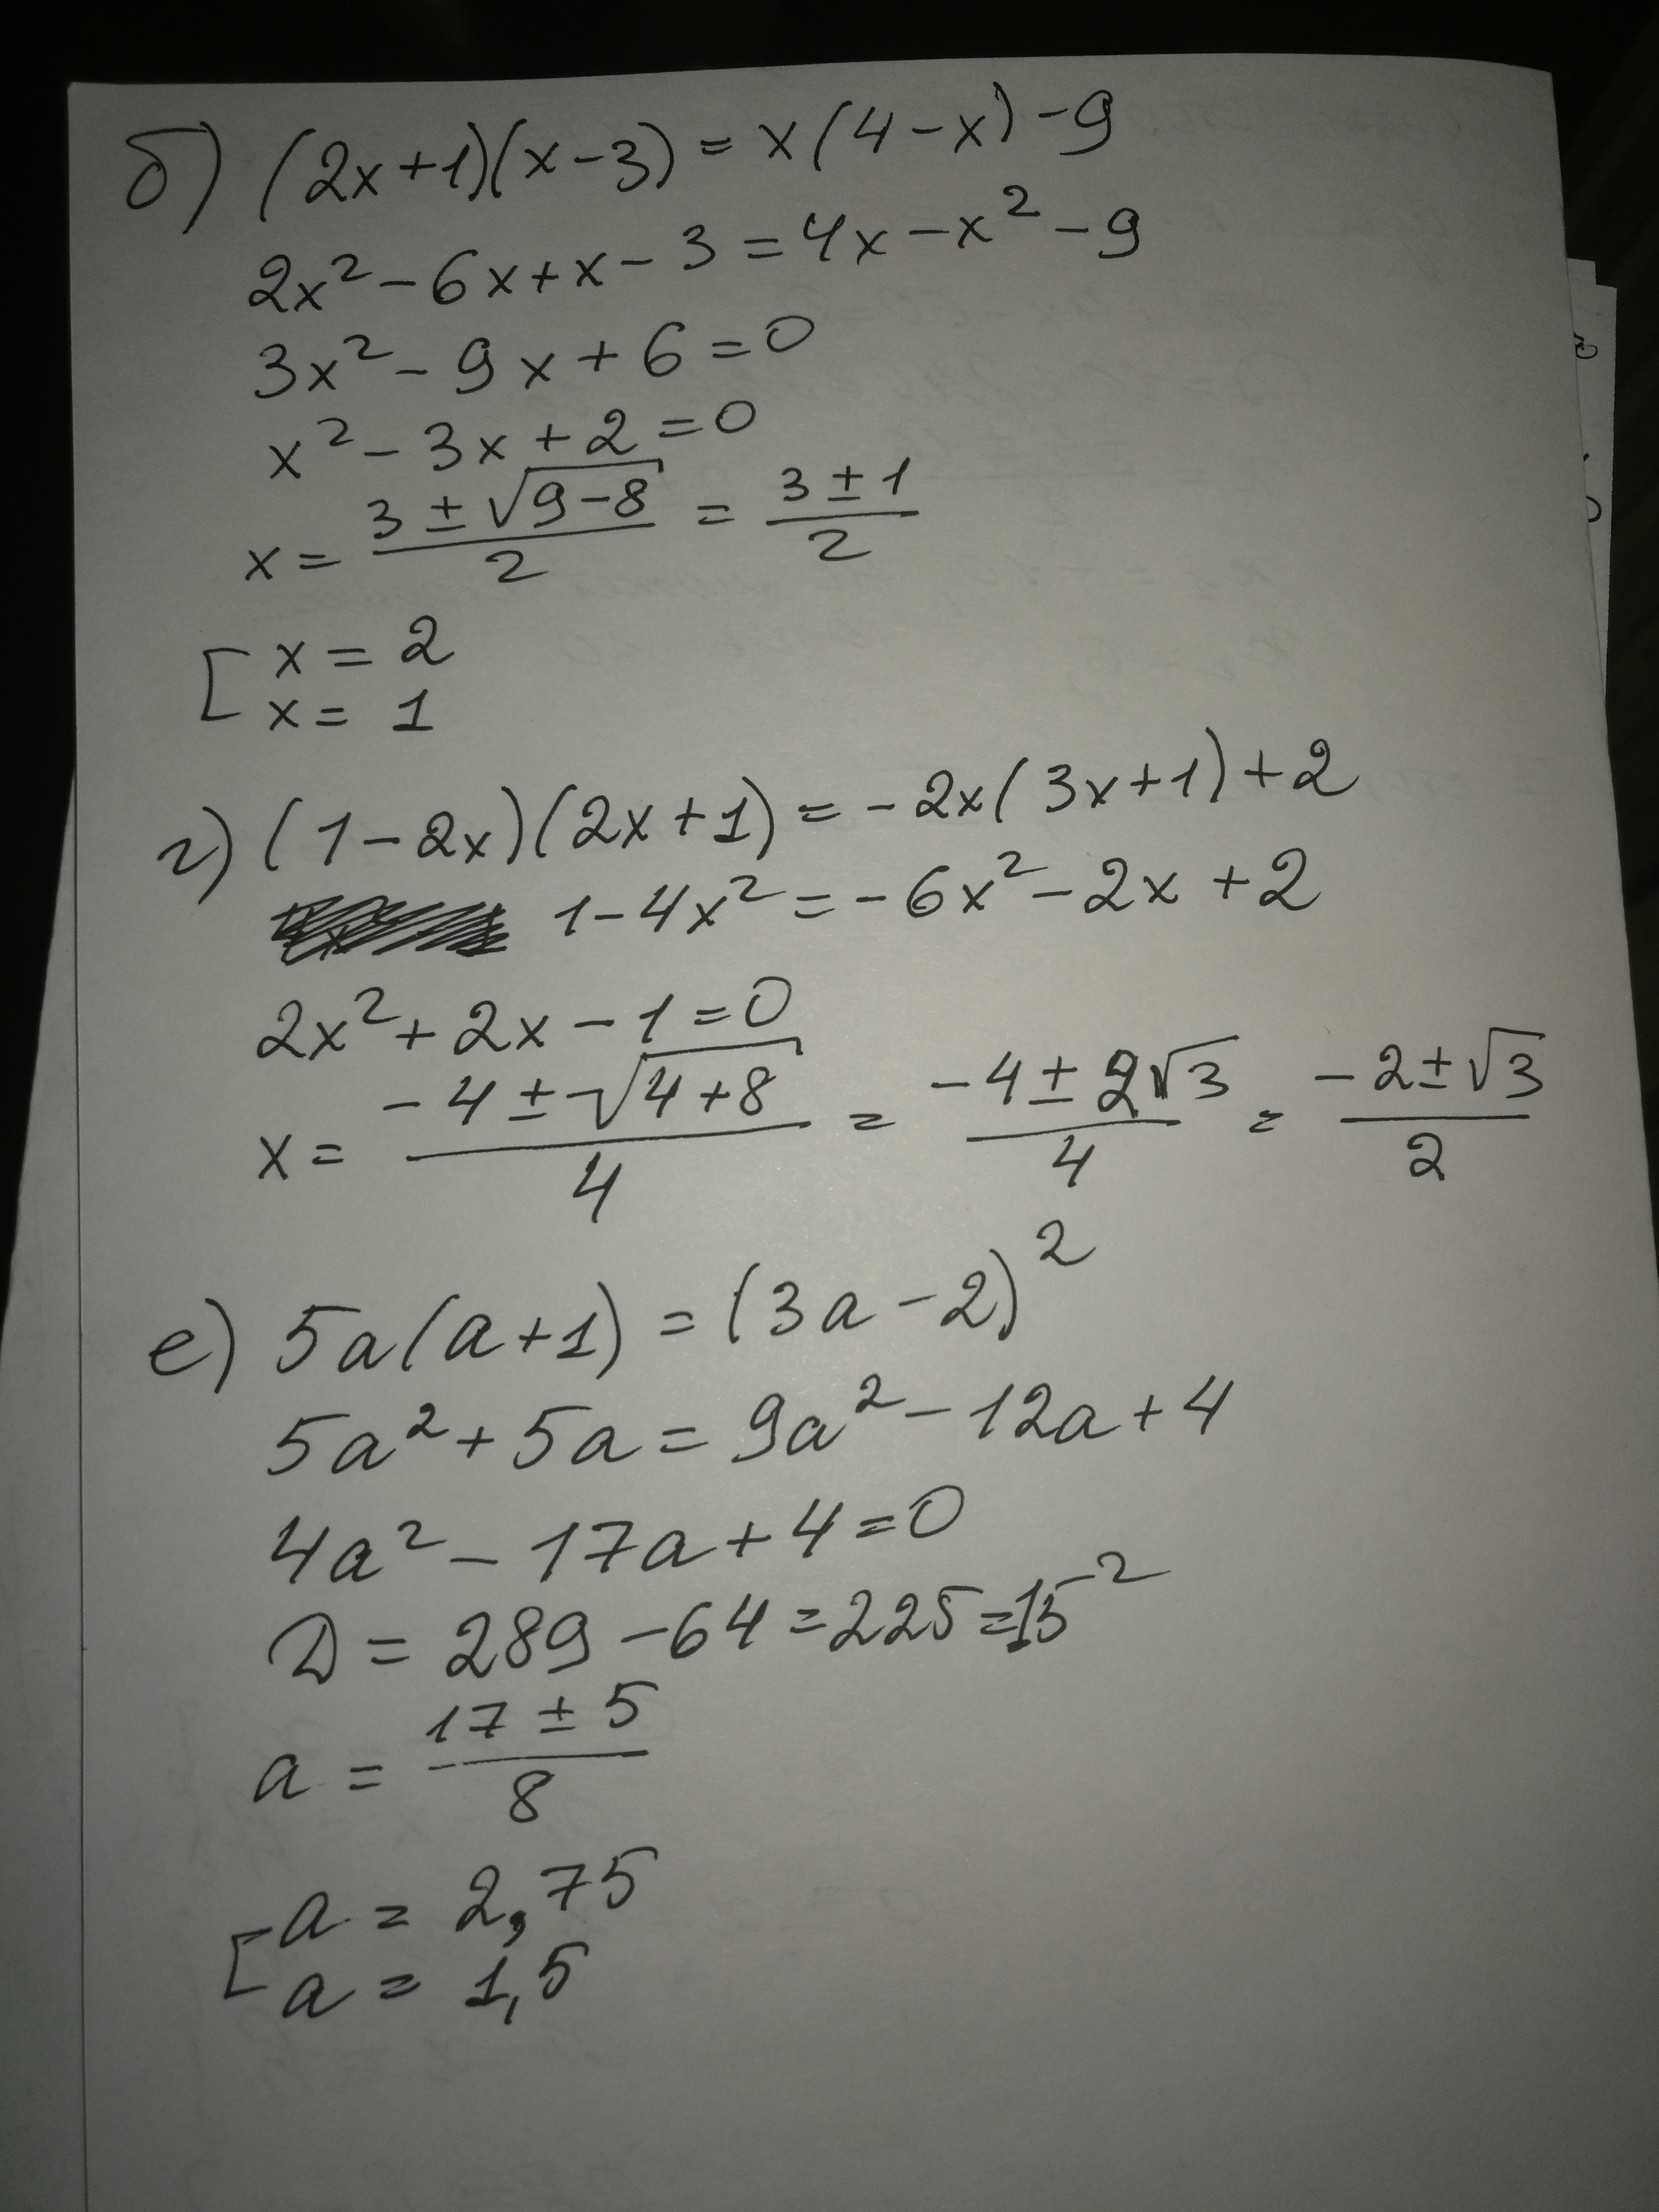 б) (2x+1)(x-3) = x(4-x)-9
2x²-6x+x-3=4x-x²-9
3x²-9x+6=0
x²-3x+2=0
x = (3±√(9-8))/2 = (3±1)/2
[ x = 2
x = 1
г) (1-2x)(2x+1) = -2x(3x+1)+2
1-4x² = -6x²-2x+2
2x²+2x-1=0
x = (-4±√(4+8))/4 = (-4±2√3)/4 = (-2±√3)/2
е) 5a(a+1) = (3a-2)²
5a²+5a=9a²-12a+4
4a²-17a+4=0
D = 289-64=225=15²
a = (17±5)/8
[ a = 2,75
a = 1,5